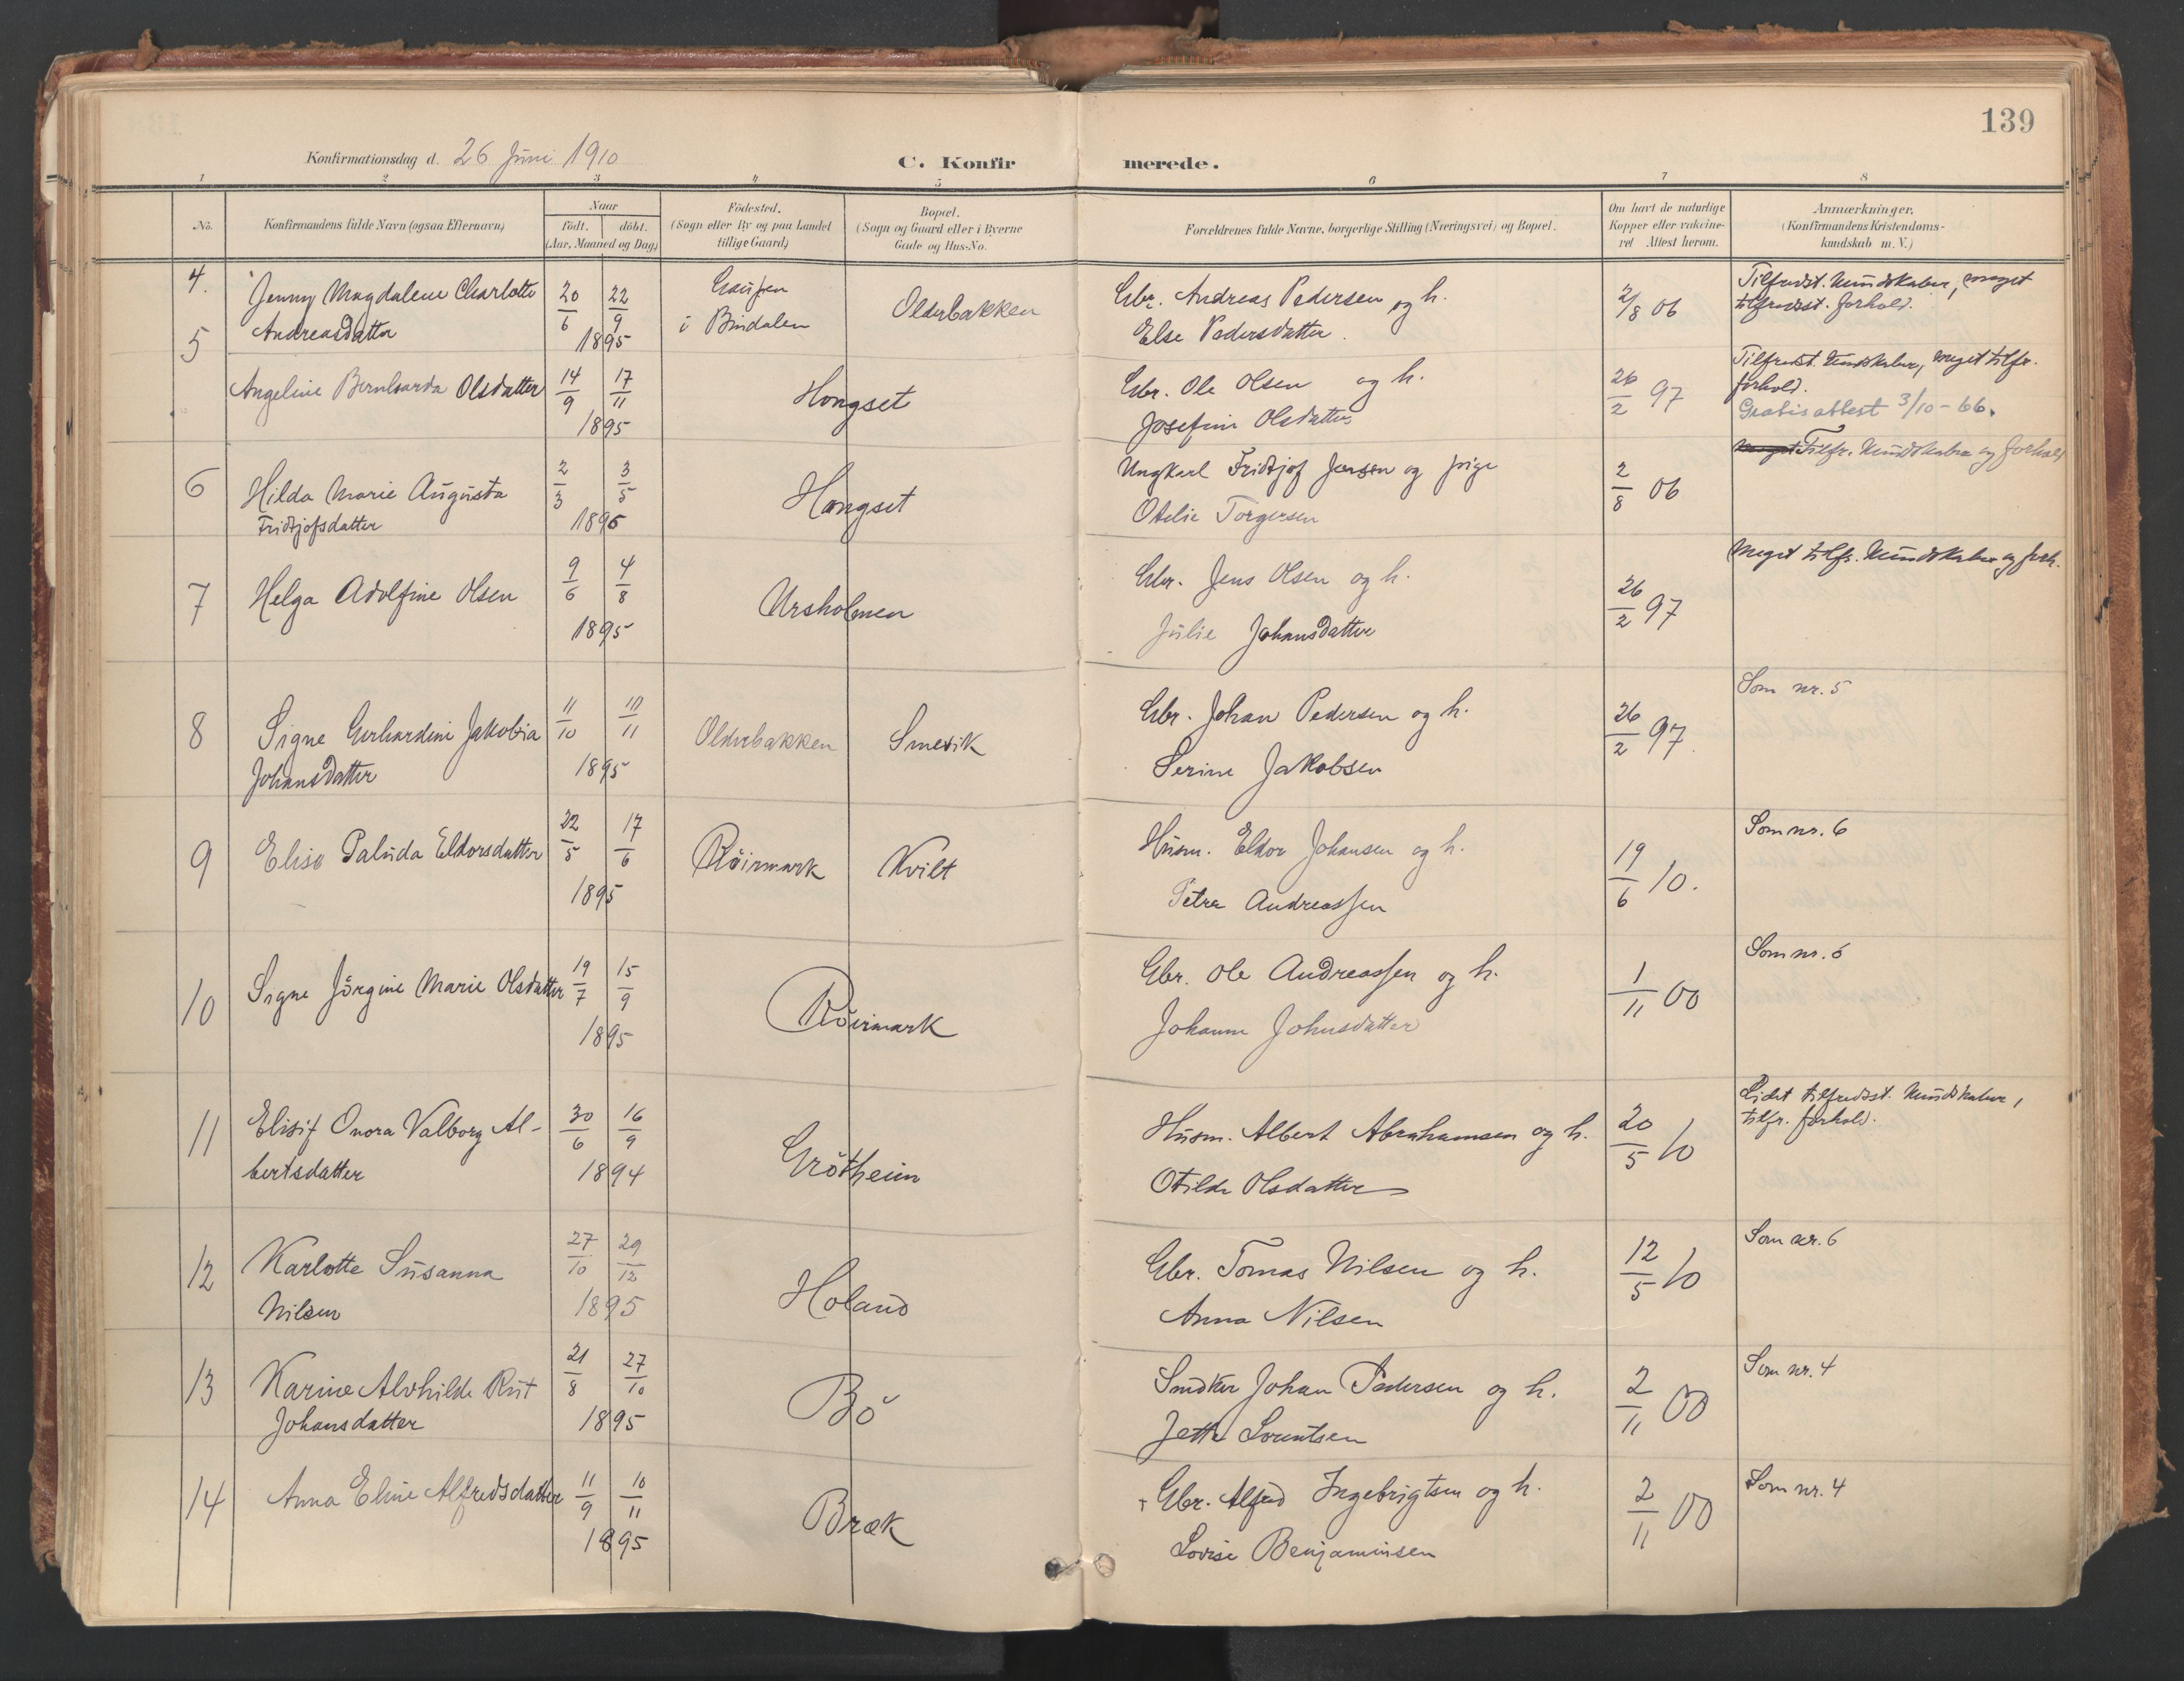 139
Konfirmationsdag d. 26 Juni 1910
C. Konfirmerede.
1 2 3 4 5 6 7 8
No.
Konfirmandens fulde Navn (ogsaa Efternavn)
Naar
født. døbt.
(Aar, Maaned og Dag)
Födested.
(Sogn eller By og paa Landet
tillige Gaard)
Bopæl.
(Sogn og Gaard eller i Byerne
Gade og Hus-No.
Forældrenes fulde Navne, borgerlige Stilling (Næringsvei) og Bopæl.
Om havt de naturlige
Kopper eller vakcine-
ret Attest herom.
Anmærkninger.
(Konfirmandens Kristendoms-
kundskab m. V.)
4. Jenny Magdalene Charlotte
Andreasdatter
20/6 22/9
1895
i Bindalen
Olderbakken
Gbr. Andreas Pedersen og h.
Else Pedersdatter.
2/8 06
Tilfredst. Kundskaber, meget
tilfredsst. forhold.
5 Angeline Bernharda Olsdatter
14/9 17/11
1895
Hongset
Gbr. Ole Olsen og h.
Josefine Olsdatter
26/2 97
Tilfredst. Kundskaber, meget tilfr.
forhold.
Gratisattest 3/10-66.
6 Hilda Marie Augusta
Fridtjofsdatter
2/3 3/5
1895
Hongset
Ungkarl Fridtjof Jensen og pige
Otelie Torgersen
2/8 06
meget Tilfr. Kundskaber og forhold
7 Helga Adolfine Olsen
9/6 4/8
1895
Ursholmen
Gbr. Jens Olsen og h.
Julie Johansdatter
26/2 97
Meget tilfr. Kundskaber og forh.
8 Signe Gerhardine Jakobia
Johansdatter
11/10 10/11
1895
Olderbakken
Smevik
Gbr. Johan Pedersen og h.
Serine Jakobsen
26/2 97.
Som nr. 5
9 Elise Paluda Eldorsdatter
22/5 17/6
1895
Röirmark
Kvilt
Husm. Eldor Johansen og h.
Petra Andreassen
19/6 10.
Som nr. 6
10 Signe Jörgine Marie Olsdatter
19/7 15/9
1895
Röirmark
Gbr. Ole Andreassen og h.
Johanne Johnsdatter
1/11 00
Som nr. 6
11 Elisif Onora Valborg Al-
bertsdatter
30/6 16/9
1894
Grötheim
Husm. Albert Abrahamsen og h.
Otilde Olsdatter
20/5 10
Lidet tilfredsst. Kundskaber,
tilfr. forhold.
12 Karlotte Susanna
Nilsen
27/10 29/12
1895
Holand
Gbr. Tomas Nilsen og h.
Anna Nilsen
12/5 10
Som nr. 6
13 Karine Alvhilde Rut
Johansdatter
21/8 27/10
1895
Bö
Snedker Johan Pedersen og h.
Jette Lorentsen
2/11 00
Som nr. 4
14 Anna Eline Alfredsdatter
11/9 10/11
1895
Bræk
+ Gbr. Alfred Ingebrigtsen og h.
Lovise Benjaminsen
2/11 00
Som nr. 4